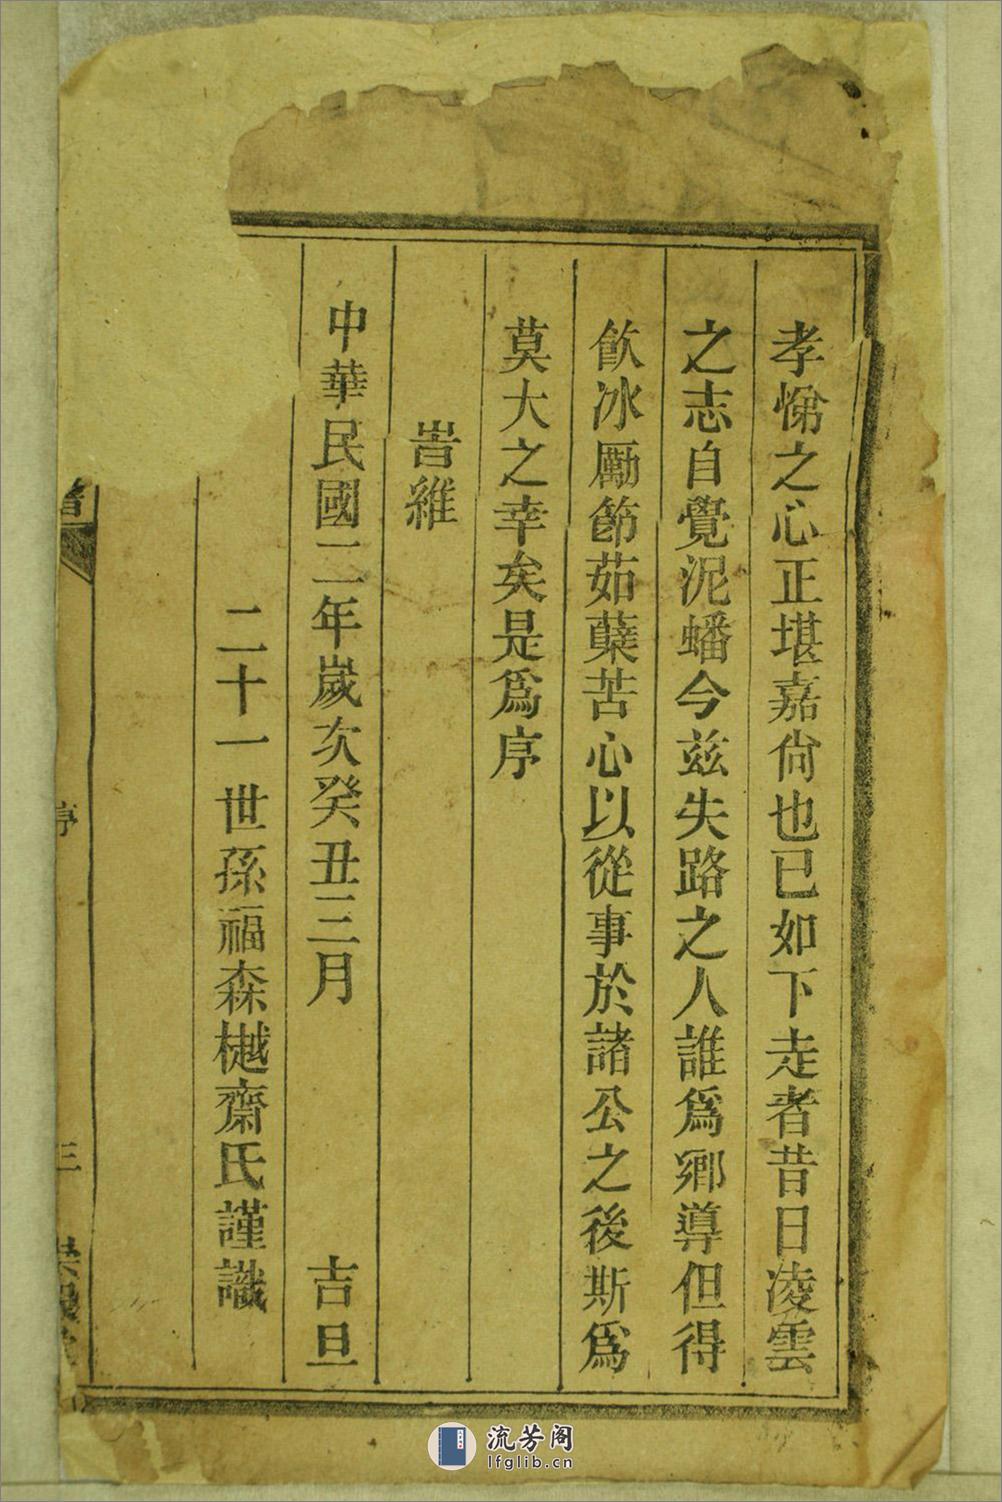 孝悌之心正堪嘉尙也已如下走者昔日凌雲
之志自覺泥蟠今兹失路之人誰爲鄉導但得
飲冰厲節茹蘗苦心以從事於諸公之後斯爲
莫大之幸矣是爲序
旹維
中華民國二年歲次癸丑三月 吉旦
二十一世孫福森樾齋氏謹識
序
三
流芳阁
lfglib.cn